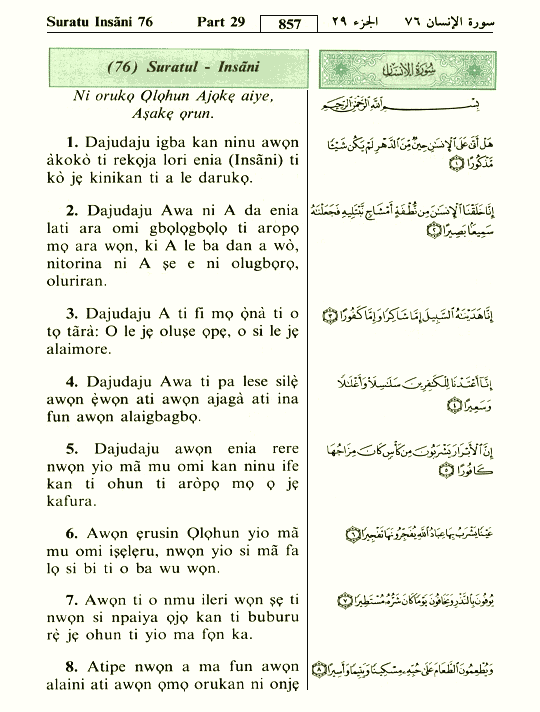 Suratu Insãni 76 Part 29 857 الجزء ٢٩ سورة الإنسان ٧٦
(76) Suratul - Insãni
Ni orukọ Ọlọhun Ajọkẹ aiye,
Aṣakẹ ọrun.
1. Dajudaju igba kan ninu awọn
àkokò ti rekọja lori enia (Insãni) ti
kò jẹ kinikan ti a le darukọ.
2. Dajudaju Awa ni A da enia
lati ara omi gbọlọgbọlọ ti aropọ
mọ ara wọn, ki A le ba dan a wò,
nitorina ni A ṣe e ni olugbọrọ,
oluriran.
3. Dajudaju A ti fi mọ ọ̀nà ti o
tọ tãrà: O le jẹ oluṣe ọpẹ, o si le jẹ
alaimore.
4. Dajudaju Awa ti pa lese silẹ̀
awọn ẹ̀wọn ati awọn ajagà ati ina
fun awọn alaigbagbọ.
5. Dajudaju awọn enia rere
nwọn yio mã mu omi kan ninu ife
kan ti ohun ti aròpọ mọ ọ jẹ
kafura.
6. Awọn ẹrusin Ọlọhun yio mã
mu omi iṣẹlẹru, nwọn yio si mã fa
lọ si bi ti o ba wu wọn.
7. Awọn ti o nmu ileri wọn ṣẹ ti
nwọn si npaiya ọjọ kan ti buburu
rẹ̀ jẹ ohun ti yio ma fọn ka.
8. Atipe nwọn a ma fun awọn
alaini ati awọn ọmọ orukan ni onjẹ
سُورَةُ الإِنسَانِ
بِسْمِ اللَّهِ الرَّحْمَٰنِ الرَّحِيمِ
هَلْ أَتَىٰ عَلَى الْإِنسَٰنِ حِينٌ مِّنَ الدَّهْرِ لَمْ يَكُن شَيْـًٔا
مَّذْكُورًا ١
إِنَّا خَلَقْنَا الْإِنسَٰنَ مِن نُّطْفَةٍ أَمْشَاجٍ نَّبْتَلِيهِ فَجَعَلْنَٰهُ
سَمِيعًا بَصِيرًا ٢
إِنَّا هَدَيْنَٰهُ السَّبِيلَ إِمَّا شَاكِرًا وَإِمَّا كَفُورًا ٣
إِنَّا أَعْتَدْنَا لِلْكَٰفِرِينَ سَلَٰسِلَا۟ وَأَغْلَٰلًا
وَسَعِيرًا ٤
إِنَّ الْأَبْرَارَ يَشْرَبُونَ مِن كَأْسٍ كَانَ مِزَاجُهَا
كَافُورًا ٥
عَيْنًا يَشْرَبُ بِهَا عِبَادُ اللَّهِ يُفَجِّرُونَهَا تَفْجِيرًا ٦
يُوفُونَ بِالنَّذْرِ وَيَخَافُونَ يَوْمًا كَانَ شَرُّهُ مُسْتَطِيرًا ٧
وَيُطْعِمُونَ الطَّعَامَ عَلَىٰ حُبِّهِ مِسْكِينًا وَيَتِيمًا وَأَسِيرًا ٨